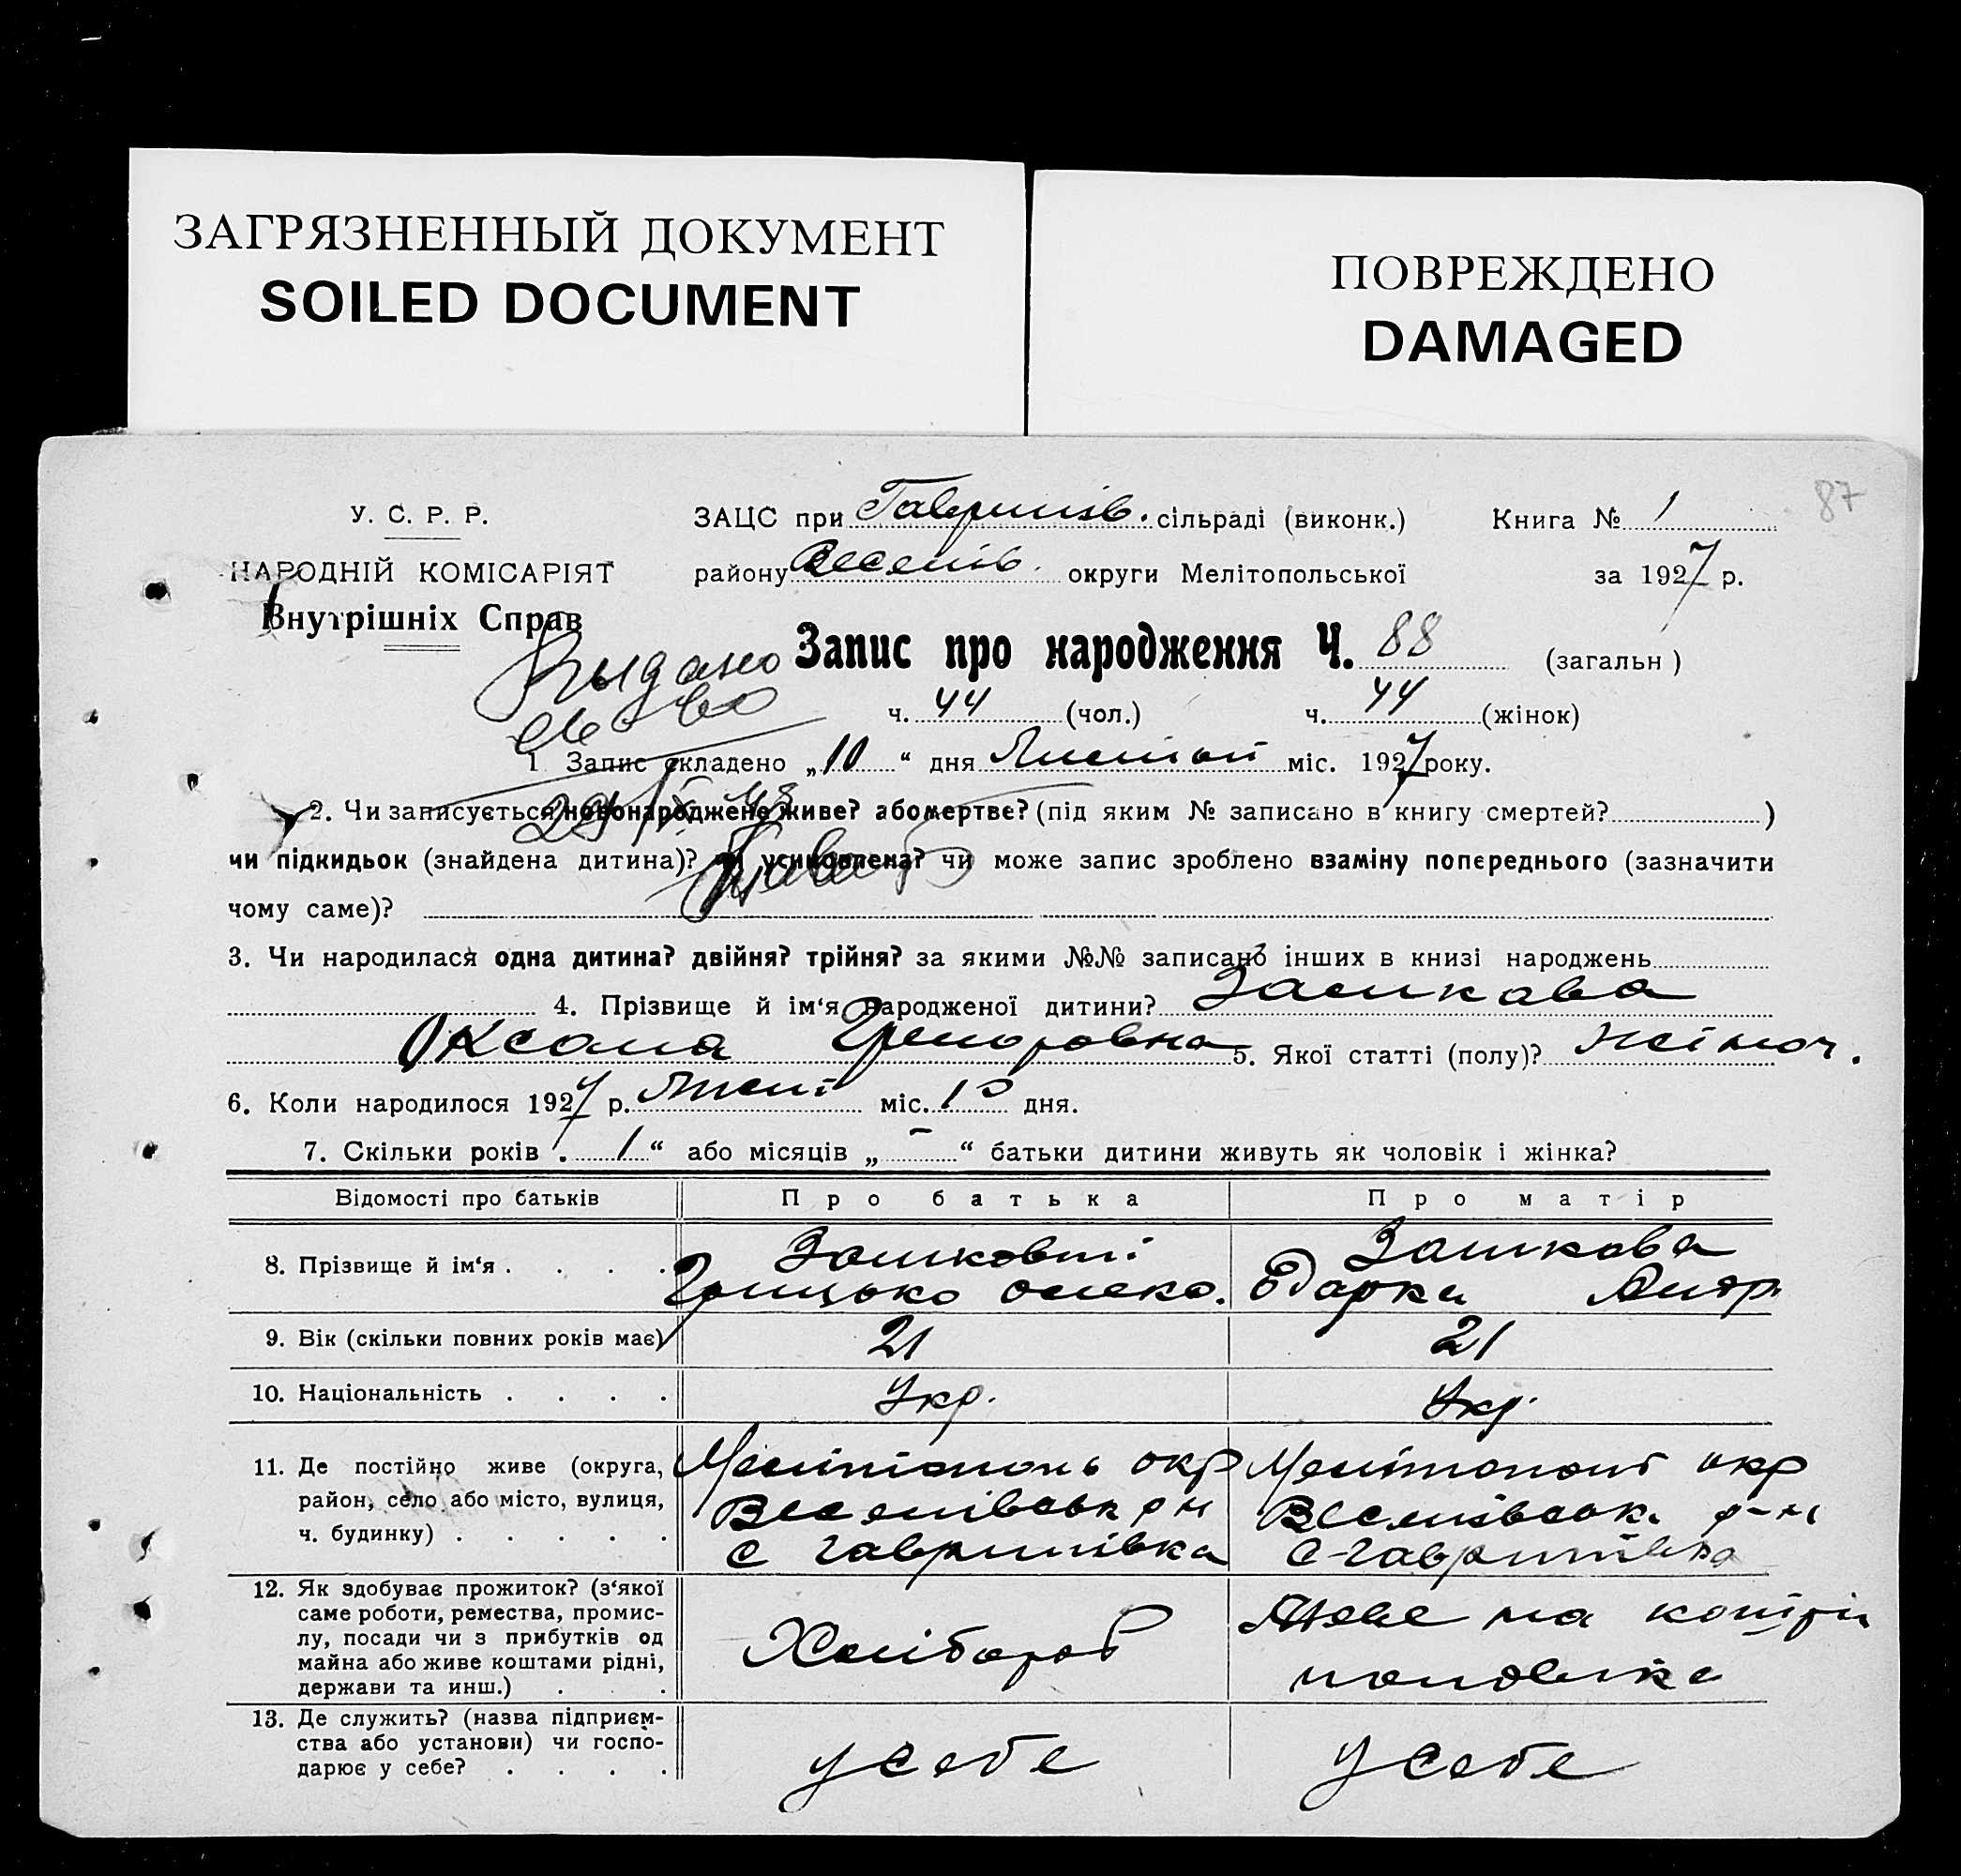 ЗАГРЯЗНЕННЫЙ ДОКУМЕНТ
SOILED DOCUMENT
ПОВРЕЖДЕНО
DAMAGED
87
У. С. Р. Р.
НАРОДНІЙ КОМІСАРІЯТ
Внутрішніх Справ
ЗАЦС при Гаврилів. сільраді (виконк.) Книга № 1
району Веселів. округи Мелітопольської за 1927 р.
Запис про народження Ч. 88 (загальн )
Выдано
св-во
ч. 44 (чол.) ч. 44 (жінок)
1 Запис складено „10“ дня міс. 1927 року.
2. Чи записується новонароджене живе? або мертве? (під яким № записано в книгу смертей? )
чи підкидьок (знайдена дитина)? чи усиновлена? чи може запис зроблено взаміну попереднього (зазначити
чому саме)?
3. Чи народилася одна дитина? двійня? трійня? за якими №№ записано інших в книзі народжень
4. Прізвище й ім‘я народженої дитини? Зашкава
Оксана 5. Якої статті (полу)? жіноч.
6. Коли народилося 1927 р. міс. 10 дня.
7. Скільки років „ 1 “ або місяців „ - “ батьки дитини живуть як чоловік і жінка?
Відомості про батьків Про батька Про матір
8. Прізвище й ім‘я . . . . Зашкова
Грицько Олекс. Одарка Андр.
9. Вік (скільки повних років має) 21 21
10. Національність . . . . Укр. Укр.
11. Де постійно живе (округа, окр окр
район, село або місто, вулиця, Веселівськ р н Веселівськ. р-н
ч. будинку) . . . . . с Гаврилівка с-Гаврилівка
12. Як здобуває прожиток? (з‘якої
саме роботи, ремества, промис-
лу, посади чи з прибутків од Хлібороб Живе на
майна або живе коштами рідні, чоловіка
держави та инш.) . . .
13. Де служить? (назва підприєм-
ства або установи) чи госпо- у себе у себе
дарює у себе? . . . .